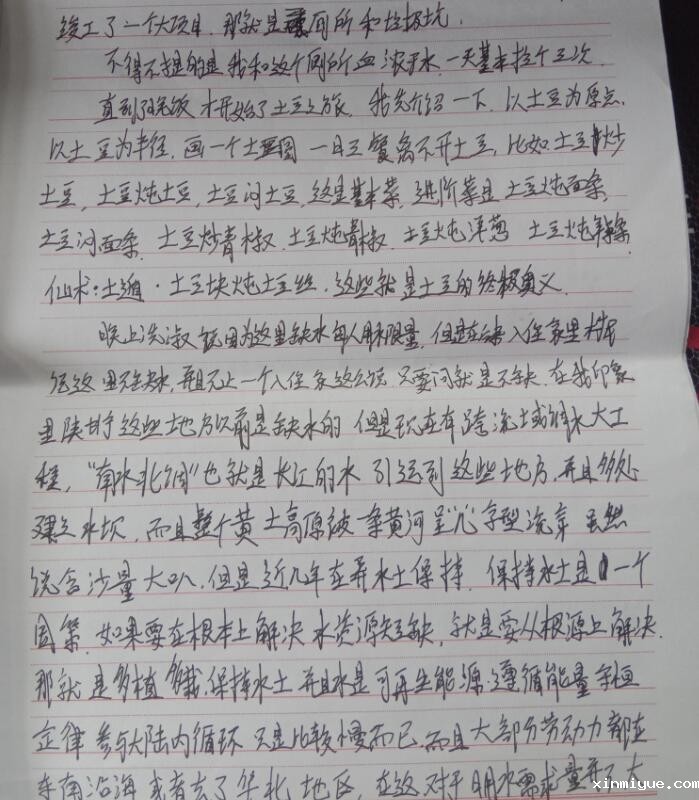 竣工了一个大项目，那就是厕所和垃圾坑．
不得不提的是我和这个厕所血浓于水，一天基本拉个三次．
直到了晚饭才开始了土豆之旅，我先介绍一下，以土豆为原点，
以土豆为半径，画一个土豆圆 一日三餐离不开土豆，比如土豆炒
土豆，土豆炖土豆，土豆闷土豆，这是基本菜，进阶菜是 土豆炖面条，
土豆闷面条 土豆炒青椒．土豆炖青椒．土豆炖洋葱 土豆炖
仙术：土遁·土豆块炖土豆丝．这些就是土豆的终极奥义．
晚上洗漱 因为这里缺水每人限量，但是在 入住家里 村民
说这里不缺水，并且上一个入住家 只要问就是不缺．在我印象
里陕甘宁这些地方以前是缺水的 但是现在有跨流域调水大工
程，“南水北调”也就是长江的水 引运到这些地方，并且多处
建立水坝，而且整个黄土高原被一条黄河呈“几”字型流穿 虽然
说含沙量大以，但是近几年在弄水土保持．保持水土是一个
国策．如果要在根本上解决水资源短缺，就是要从根源上解决．
那就是多植 保持水土 并且水是可再生能源．遵循能量守恒
定律 参与大陆内循环 只是比较慢而已，而且大部分劳动力都在
东南沿海 或者去了华北地区，在这对于用水需求量
xinmiyue.com